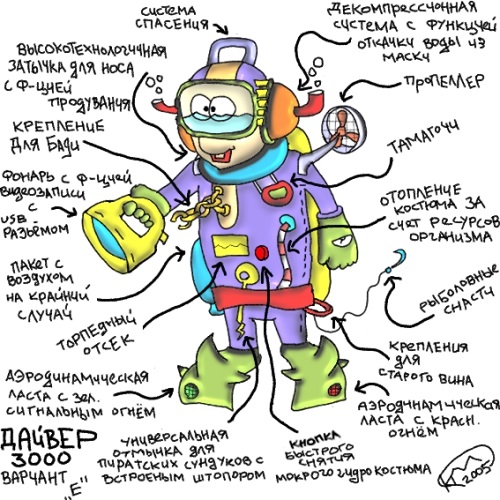 СИСТЕМА
СПАСЕНИЯ
ДЕКОМПРЕССИОННАЯ
СИСТЕМА С ФУНКЦИЕЙ
ОТКАЧКИ ВОДЫ ИЗ
МАСКИ
ВЫСОКОТЕХНОЛОГИЧНАЯ
ЗАТЫЧКА ДЛЯ НОСА
С Ф-ЦИЕЙ
ПРОДУВАНИЯ
ПРОПЕЛЛЕР
КРЕПЛЕНИЕ
ДЛЯ БАДИ
ТАМАГОЧИ
ФОНАРЬ С Ф-ЦИЕЙ
ВИДЕОЗАПИСИ
С
USB
РАЗЪЁМОМ
ОТОПЛЕНИЕ
КОСТЮМА ЗА
СЧЕТ РЕСУРСОВ
ОРГАНИЗМА
ПАКЕТ С
ВОЗДУХОМ
НА КРАЙНИЙ
СЛУЧАЙ
РЫБОЛОВНЫЕ
СНАСТИ
ТОРПЕДНЫЙ
ОТСЕК
КРЕПЛЕНИЯ
ДЛЯ
СТАРОГО ВИНА
АЭРОДИНАМИЧЕСКАЯ
ЛАСТА С ЗЕЛ.
СИГНАЛЬНЫМ ОГНЁМ
АЭРОДИНАМИЧЕСКАЯ
ЛАСТА С КРАСН.
ОГНЁМ
ДАЙВЕР
3000
ВАРИАНТ
"Е"
УНИВЕРСАЛЬНАЯ
ОТМЫЧКА ДЛЯ
ПИРАТСКИХ СУНДУКОВ С
ВСТРОЕНЫМ ШТОПОРОМ
КНОПКА
БЫСТРОГО
СНЯТИЯ
МОКРОГО ГИДРОКОСТЮМА
2005